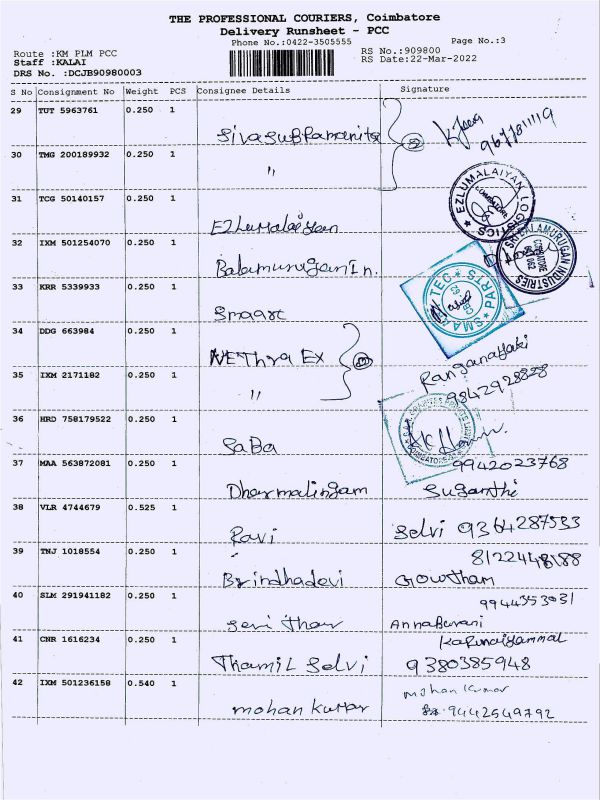 THE PROFESSIONAL COURIERS, Coimbatore
Delivery Runsheet - PCC
Phone No.:0422-3505555
Page No.:3
Route :KM PLM PCC
RS No.:909800
Staff :KALAI
RS Date:22-Mar-2022
DRS No. :DCJB90980003
S No Consignment No Weight PCS Consignee Details Signature
29 TUT 5963761 0.250 1
Sivasubramaniya
30 TMG 200189932 0.250 1
"
31 TCG 50140157 0.250 1
Ezhumalaiyan
EZLUMALAIYAN LOGISTICS
32 IXM 501254070 0.250 1
Balamurugan In.
BALAMURUGAN INDUSTRIES
33 KRR 5339933 0.250 1
Smaart
34 DDG 663984 0.250 1
NEThra Ex
35 IXM 2171182 0.250 1
" Ranganayaki
9842928828
36 HRD 758179522 0.250 1
SaBa
37 MAA 563872081 0.250 1 9942023768
Dharmalingam Suganthi
38 VLR 4744679 0.525 1
Ravi Selvi 9364287533
39 TNJ 1018554 0.250 1 8122448188
Brindhadevi Gowtham
40 SLM 291941182 0.250 1 9944353031
41 CNR 1616234 0.250 1
Thamil Selvi 9380385948
42 IXM 501236158 0.540 1 mohan kumar
mohan kumar 9442549792